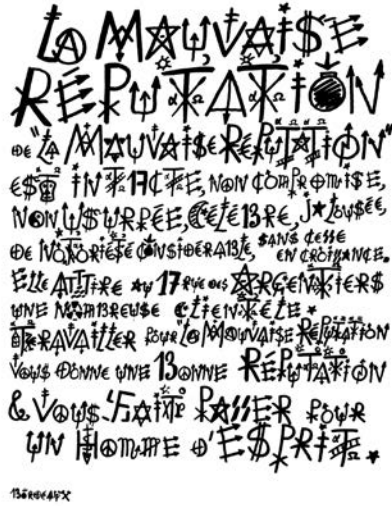 LA MAUVAISE
RÉPUTATION
DE "LA MAUVAISE RÉPUTATION"
EST INTACTE, NON COMPROMISE,
NON USURPÉE, CÉLÉBRÉ, JALOUSÉE,
DE NOTORIÉTÉ CONSIDÉRABLE, SANS CESSE
EN CROISSANCE.
ELLE ATTIRE AU 17 RUE DES ARGENTIERS
UNE NOMBREUSE CLIENTÈLE.
TRAVAILLER POUR LA MAUVAISE RÉPUTATION
VOUS DONNE UNE BONNE RÉPUTATION
& VOUS FAIT PASSER POUR
UN HOMME D'ESPRIT.
BORDEAUX